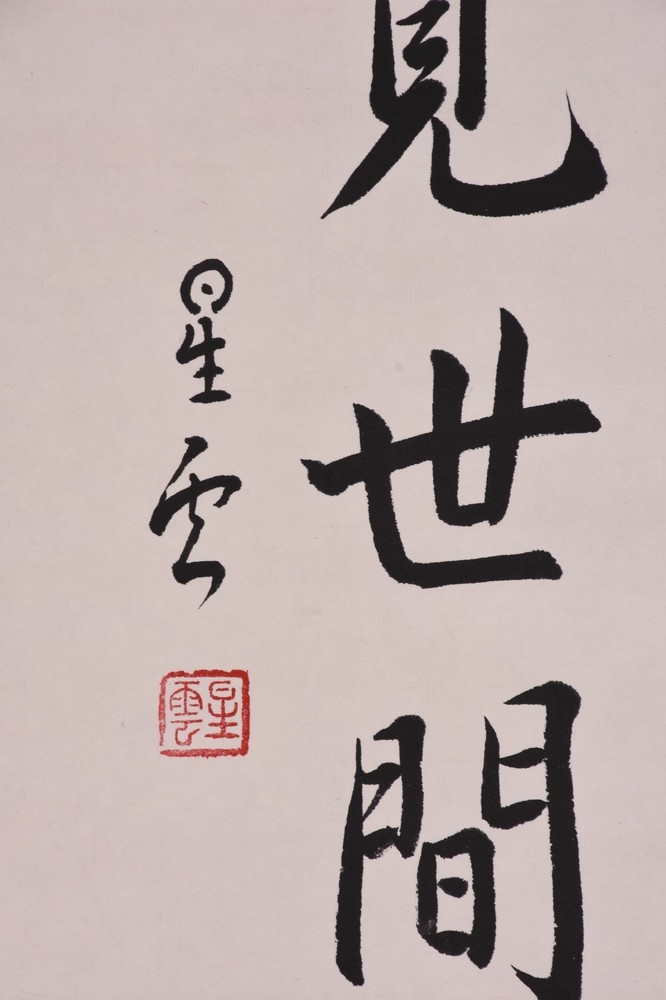 見世間
星雲
星雲